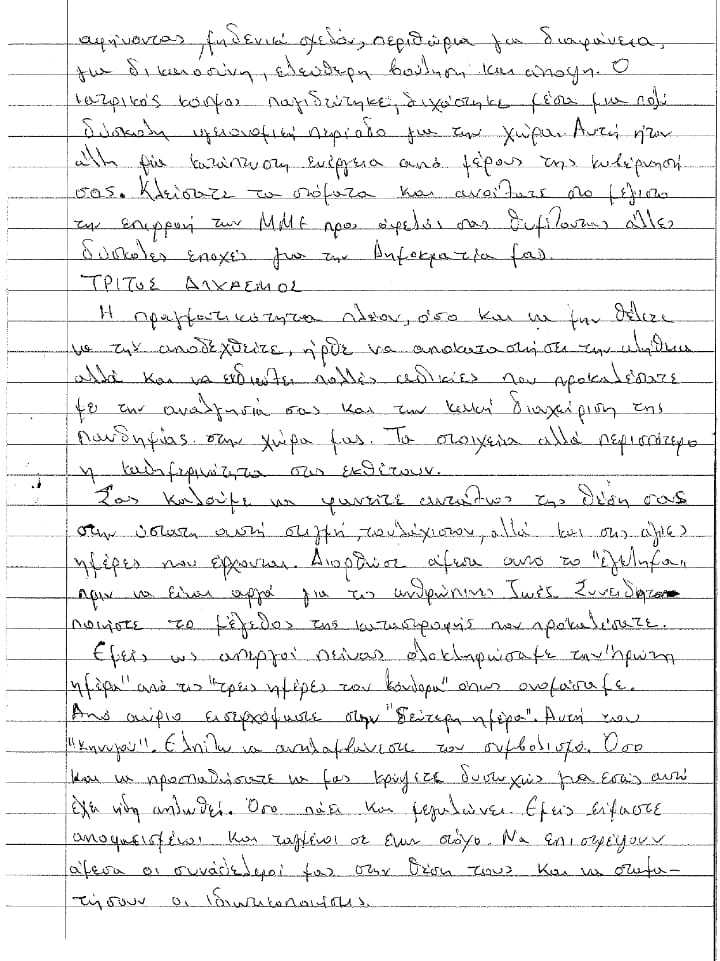 αφήνοντας μηδενικά σχεδόν, περιθώρια για διαφάνεια,
για δικαιοσύνη, ελεύθερη βούληση και άποψη. Ο
ιατρικός κόσμος παγιδεύτηκε, διχάστηκε μέσα μια πολύ
δύσκολη υγειονομική περίοδο για την χώρα. Αυτή ήταν
άλλη μία κατάπτυστη ενέργεια από μέρους της κυβέρνησή
σας. Κλείσατε τα στόματα και ανοίξατε στο μέγιστο
την επιρροή των ΜΜΕ προς όφελός σας θυμίζοντας άλλες
δύσκολες εποχές για την Δημοκρατία μας.
ΤΡΙΤΟΣ ΔΙΧΑΣΜΟΣ
Η πραγματικότητα πλέον, όσο και να μην θέλετε
να την αποδεχθείτε, ήρθε να αποκαταστήσει την αλήθεια
αλλά και να εκδικάσει πολλές αδικίες που προκαλέσατε
με την αναλγησία σας και την κακή διαχείριση της
πανδημίας στην χώρα μας. Τα στοιχεία αλλά περισσότερο
η καθημερινότητα σας εκθέτουν.
Σας καλούμε να φανείτε αντάξιος της θέση σας
στην ύστατη αυτή στιγμή, τουλάχιστον, αλλά και στις άγιες
ημέρες που έρχονται. Διορθώστε άμεσα αυτό το "έγκλημα"
πριν να είναι αργά για τις ανθρώπινες ζωές. Συνειδητο
ποιήστε το μέγεθος της καταστροφής που προκαλέσατε.
Εμείς ως απεργοί πείνας ολοκληρώσαμε την "πρώτη
ημέρα" από τις "τρεις ημέρες του κόνδορα" όπως ονομάσαμε.
Από αύριο εισερχόμαστε στην "δεύτερη ημέρα". Αυτή του
"Κυνηγού". Ελπίζω να αντιλαμβάνεστε τον συμβολισμό. Όσο
και να προσπαθήσατε να μας κρύψετε δυστυχώς για εσάς αυτό
έχει ήδη απλωθεί. Όσο πάει και μεγαλώνει. Εμείς είμαστε
αποφασισμένοι και ταγμένοι σε έναν στόχο. Να επιστρέψουν
άμεσα οι συνάδελφοί μας στην θέση τους και να σταμα-
τήσουν οι ιδιωτικοποιήσεις.